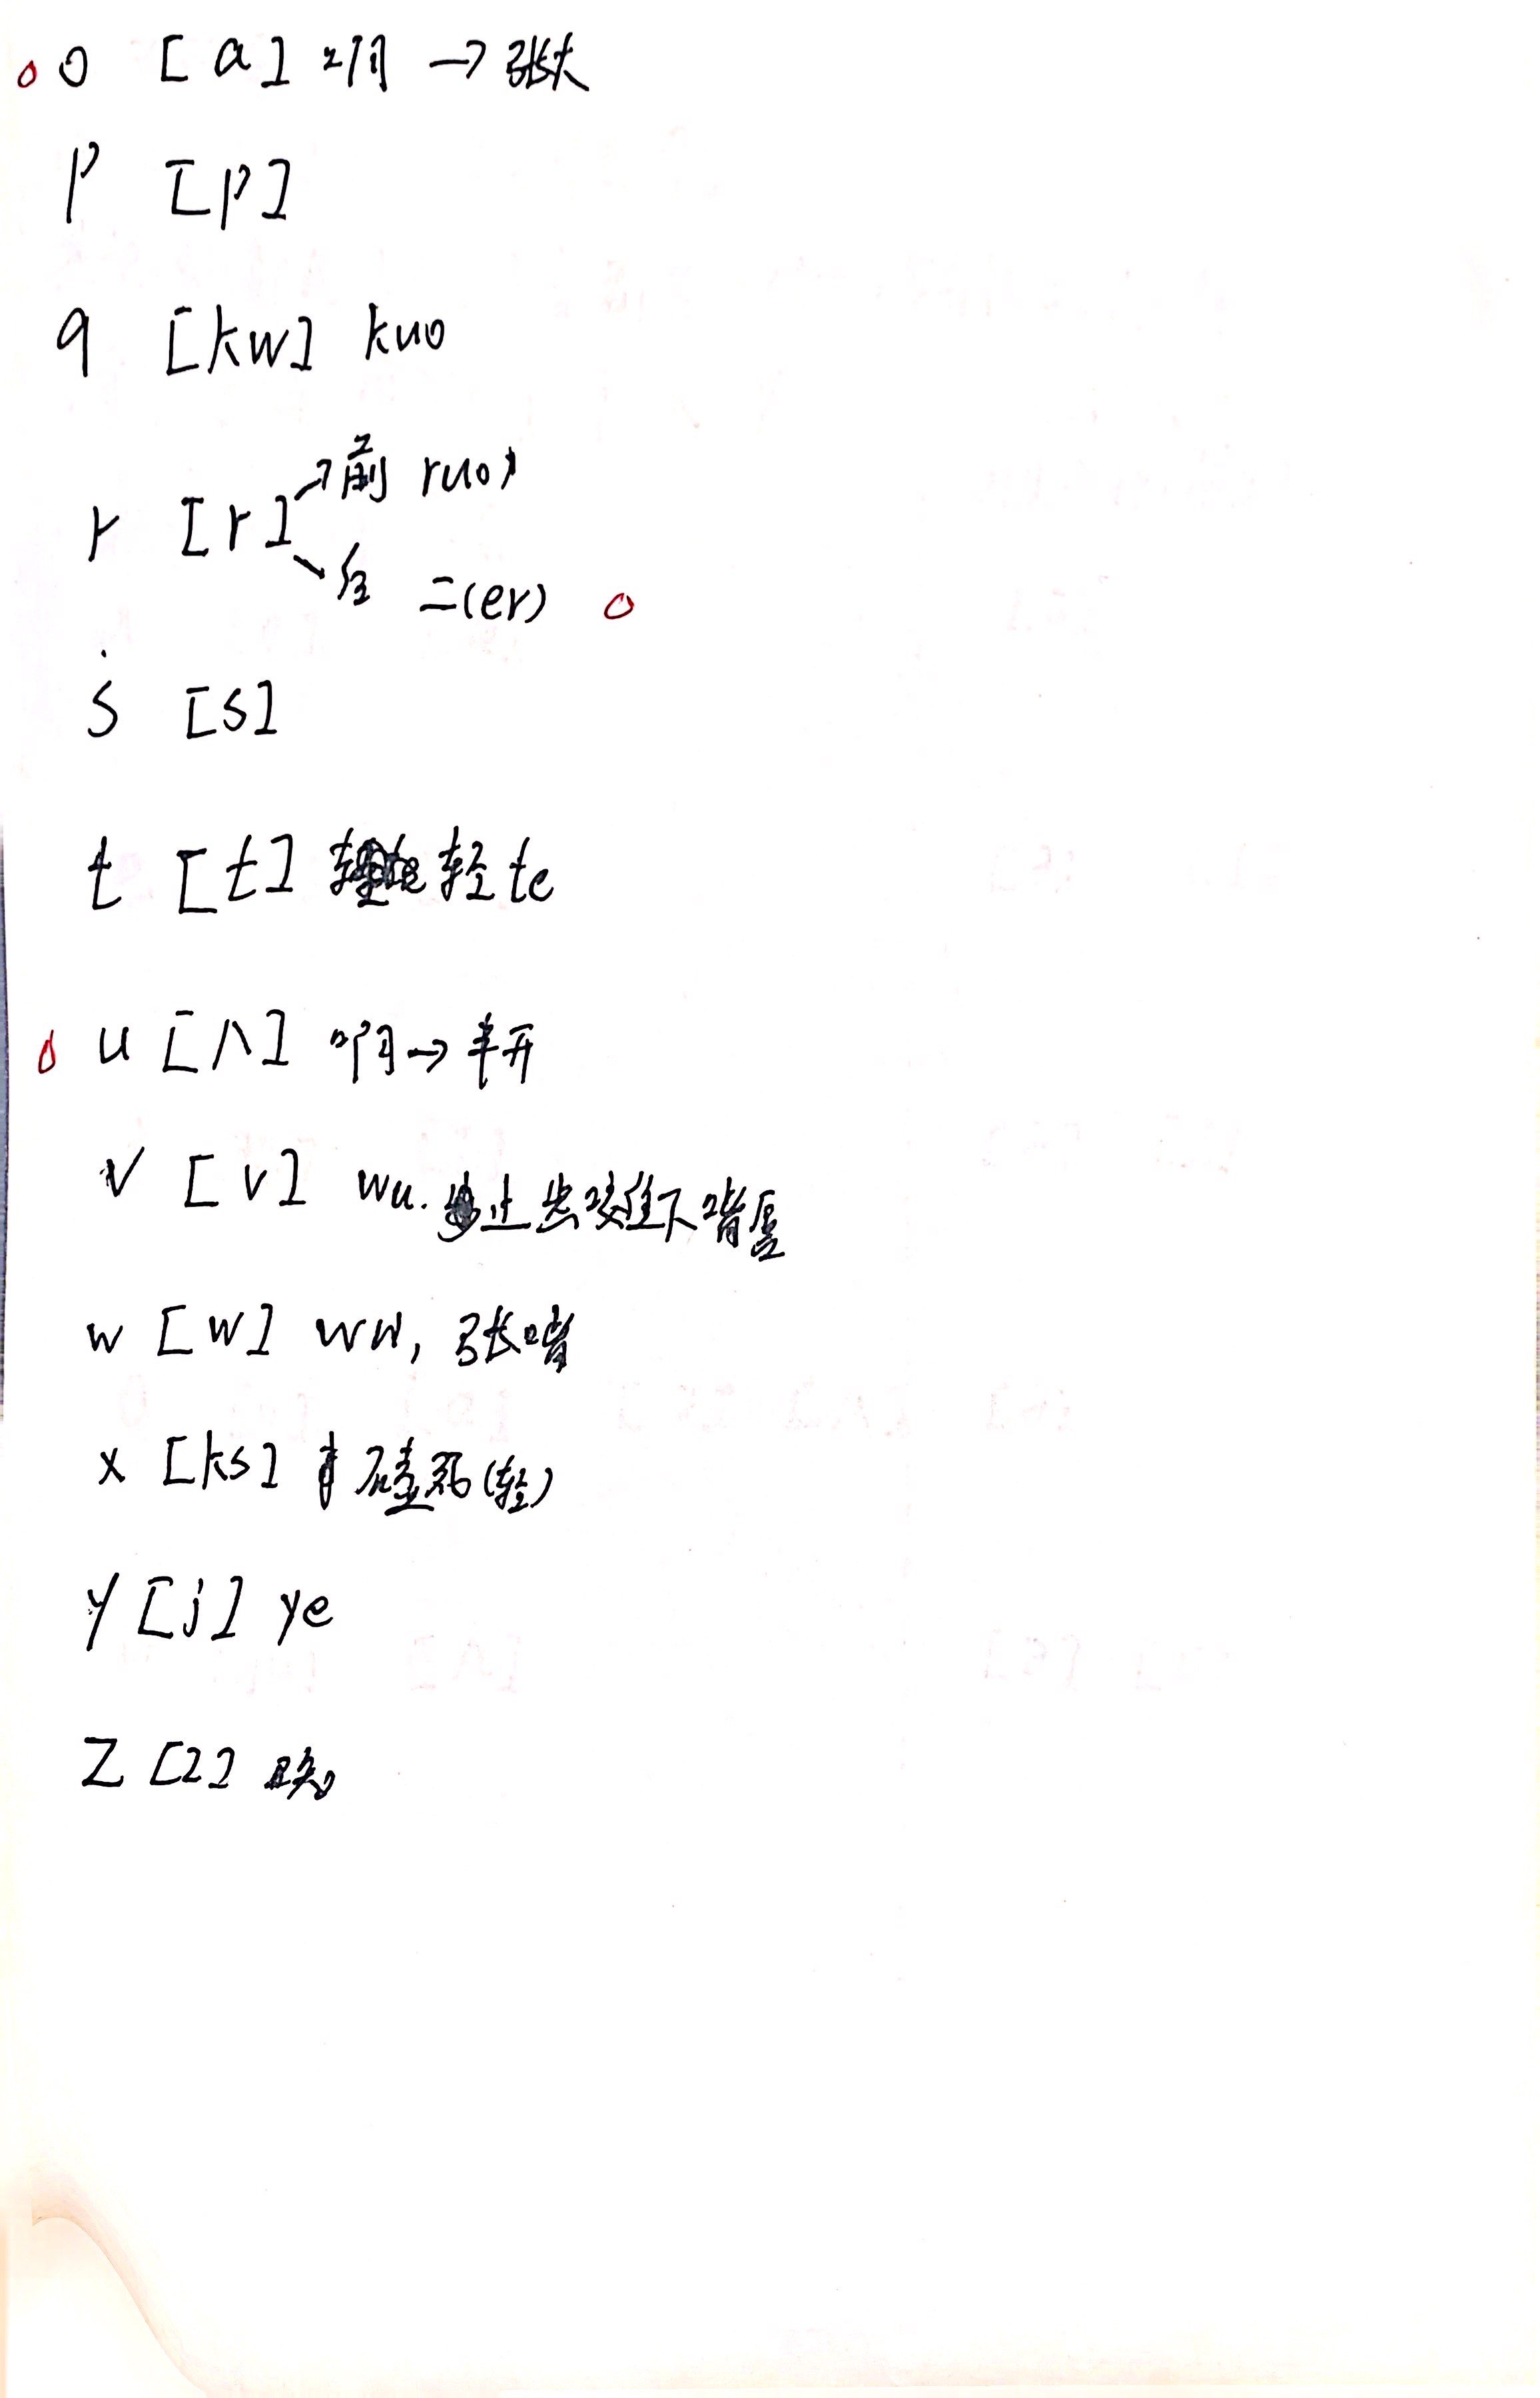 o [a] 啊 → 张大
p [p]
q [kw] kuo
r [r] → 前 ruo
→ 后 二(er)
s [s]
t [t] 轻te
u [ʌ] 啊 → 半开
v [v] wu. 上齿咬住下嘴唇
w [w] wu, 张嘴
x [ks] 磕死(轻)
y [j] ye
z [z]